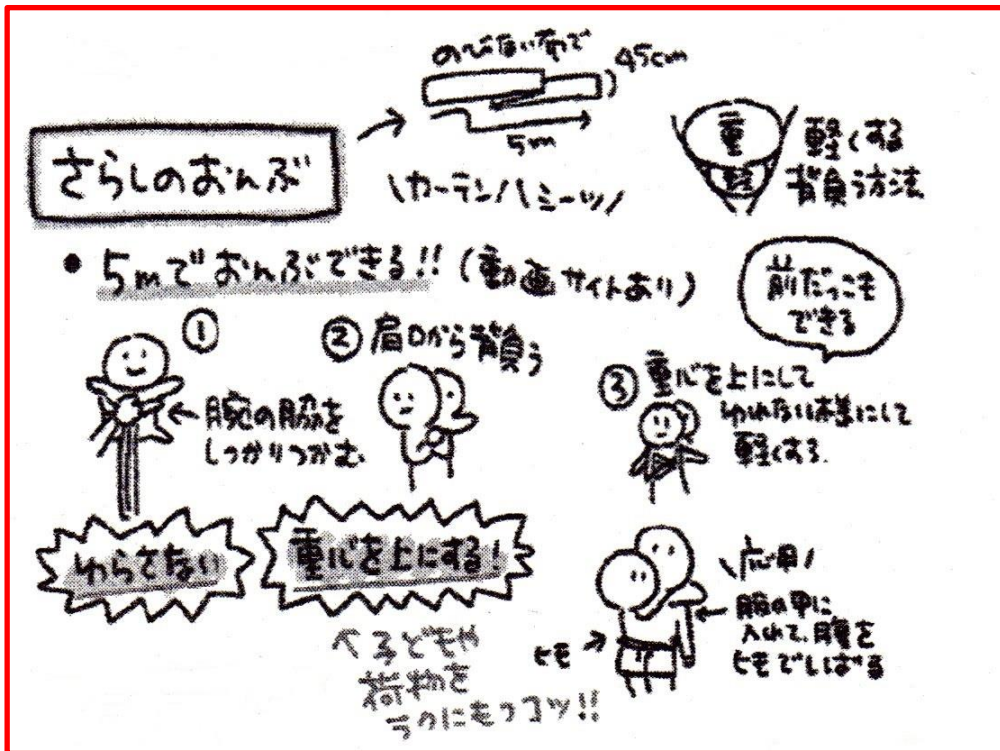 のびない布で
45cm
5m
さらしのおんぶ
\カーテン/\シーツ/
重
軽
軽くする
背負う方法
• 5mでおんぶできる!!(動画サイトあり)
前だっこも
できる
①
腕の脇を
しっかりつかむ
② 肩口から背負う
③ 重心を上にして
ゆれない様にして
軽くする.
ゆらさない
重心を上にする!
子どもや
荷物を
ラクにもつコツ!!
\応用/
服の中に
入れて、腹を
ヒモでしばる
ヒモ